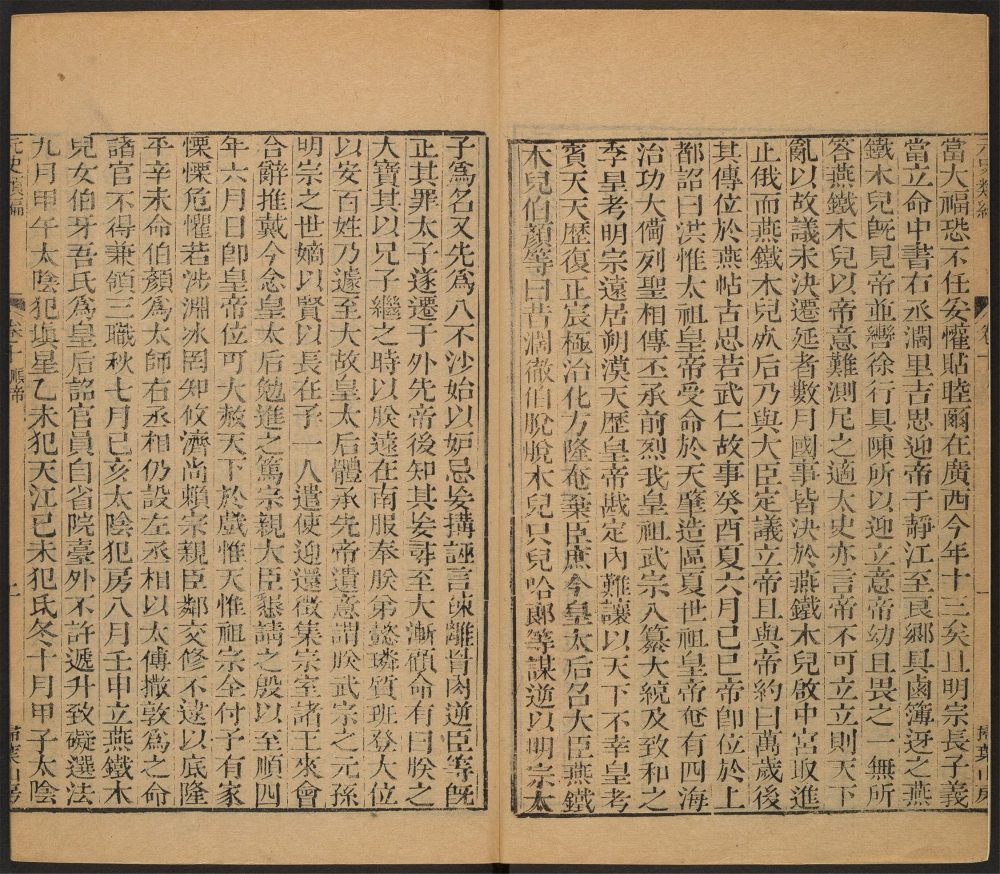 當大福恐不任妥懽貼睦爾在廣西今年十三矣且明宗長子義
當立命中書右丞濶里吉思迎帝于靜江至良鄉具鹵簿迓之燕
鐵木兒旣見帝並轡徐行具陳所以迎立意帝幼且畏之一無所
答燕鐵木兒以帝意難測凥之適太史亦言帝不可立立則天下
亂以故議未決遷延者數月國事皆決於燕鐵木兒啟中宮取進
止俄而燕鐵木兒歿后乃與大臣定議立帝且與帝約曰萬歲後
其傳位於燕帖古思若武仁故事癸酉夏六月己巳帝卽位於上
都詔曰洪惟太祖皇帝受命於天肇造區夏世祖皇帝奄有四海
治功大備列聖相傳丕承前烈我皇祖武宗入纂大統及致和之
季皇考明宗遠居朔漠天歷皇帝戡定內難讓以天下不幸皇考
賓天天歷復正宸極治化方隆奄棄臣庶今皇太后名大臣燕鐵
木兒伯顏等曰昔濶徹伯脫脫木兒只兒哈郎等謀逆以明宗太
子爲名又先爲八不沙始以妬忌妄搆誣言疎離骨肉逆臣等旣
正其罪太子遂遷于外先帝後知其妄尋至大漸顧命有曰朕之
大寶其以兄子繼之時以朕遠在南服奉朕弟懿璘質班登大位
以安百姓乃遽至大故皇太后體承先帝遺意謂朕武宗之元孫
明宗之世嫡以賢以長在予一人遣使迎還徵集宗室諸王來會
合辭推戴今念皇太后勉進之篤宗親大臣懇請之殷以至順四
年六月日卽皇帝位可大赦天下於戲惟天惟祖宗全付予有家
慄慄危懼若涉淵冰罔知攸濟尚賴宗親臣鄰交修不逮以底隆
平辛未命伯顏爲太師右丞相仍設左丞相以太傅撒敦爲之命
諸官不得兼領三職秋七月己亥太陰犯房八月壬申立燕鐵木
兒女伯牙吾氏爲皇后詔官員自省院臺外不許遞升致礙選法
九月甲午太陰犯塡星乙未犯天江己未犯氐冬十月甲子太陰